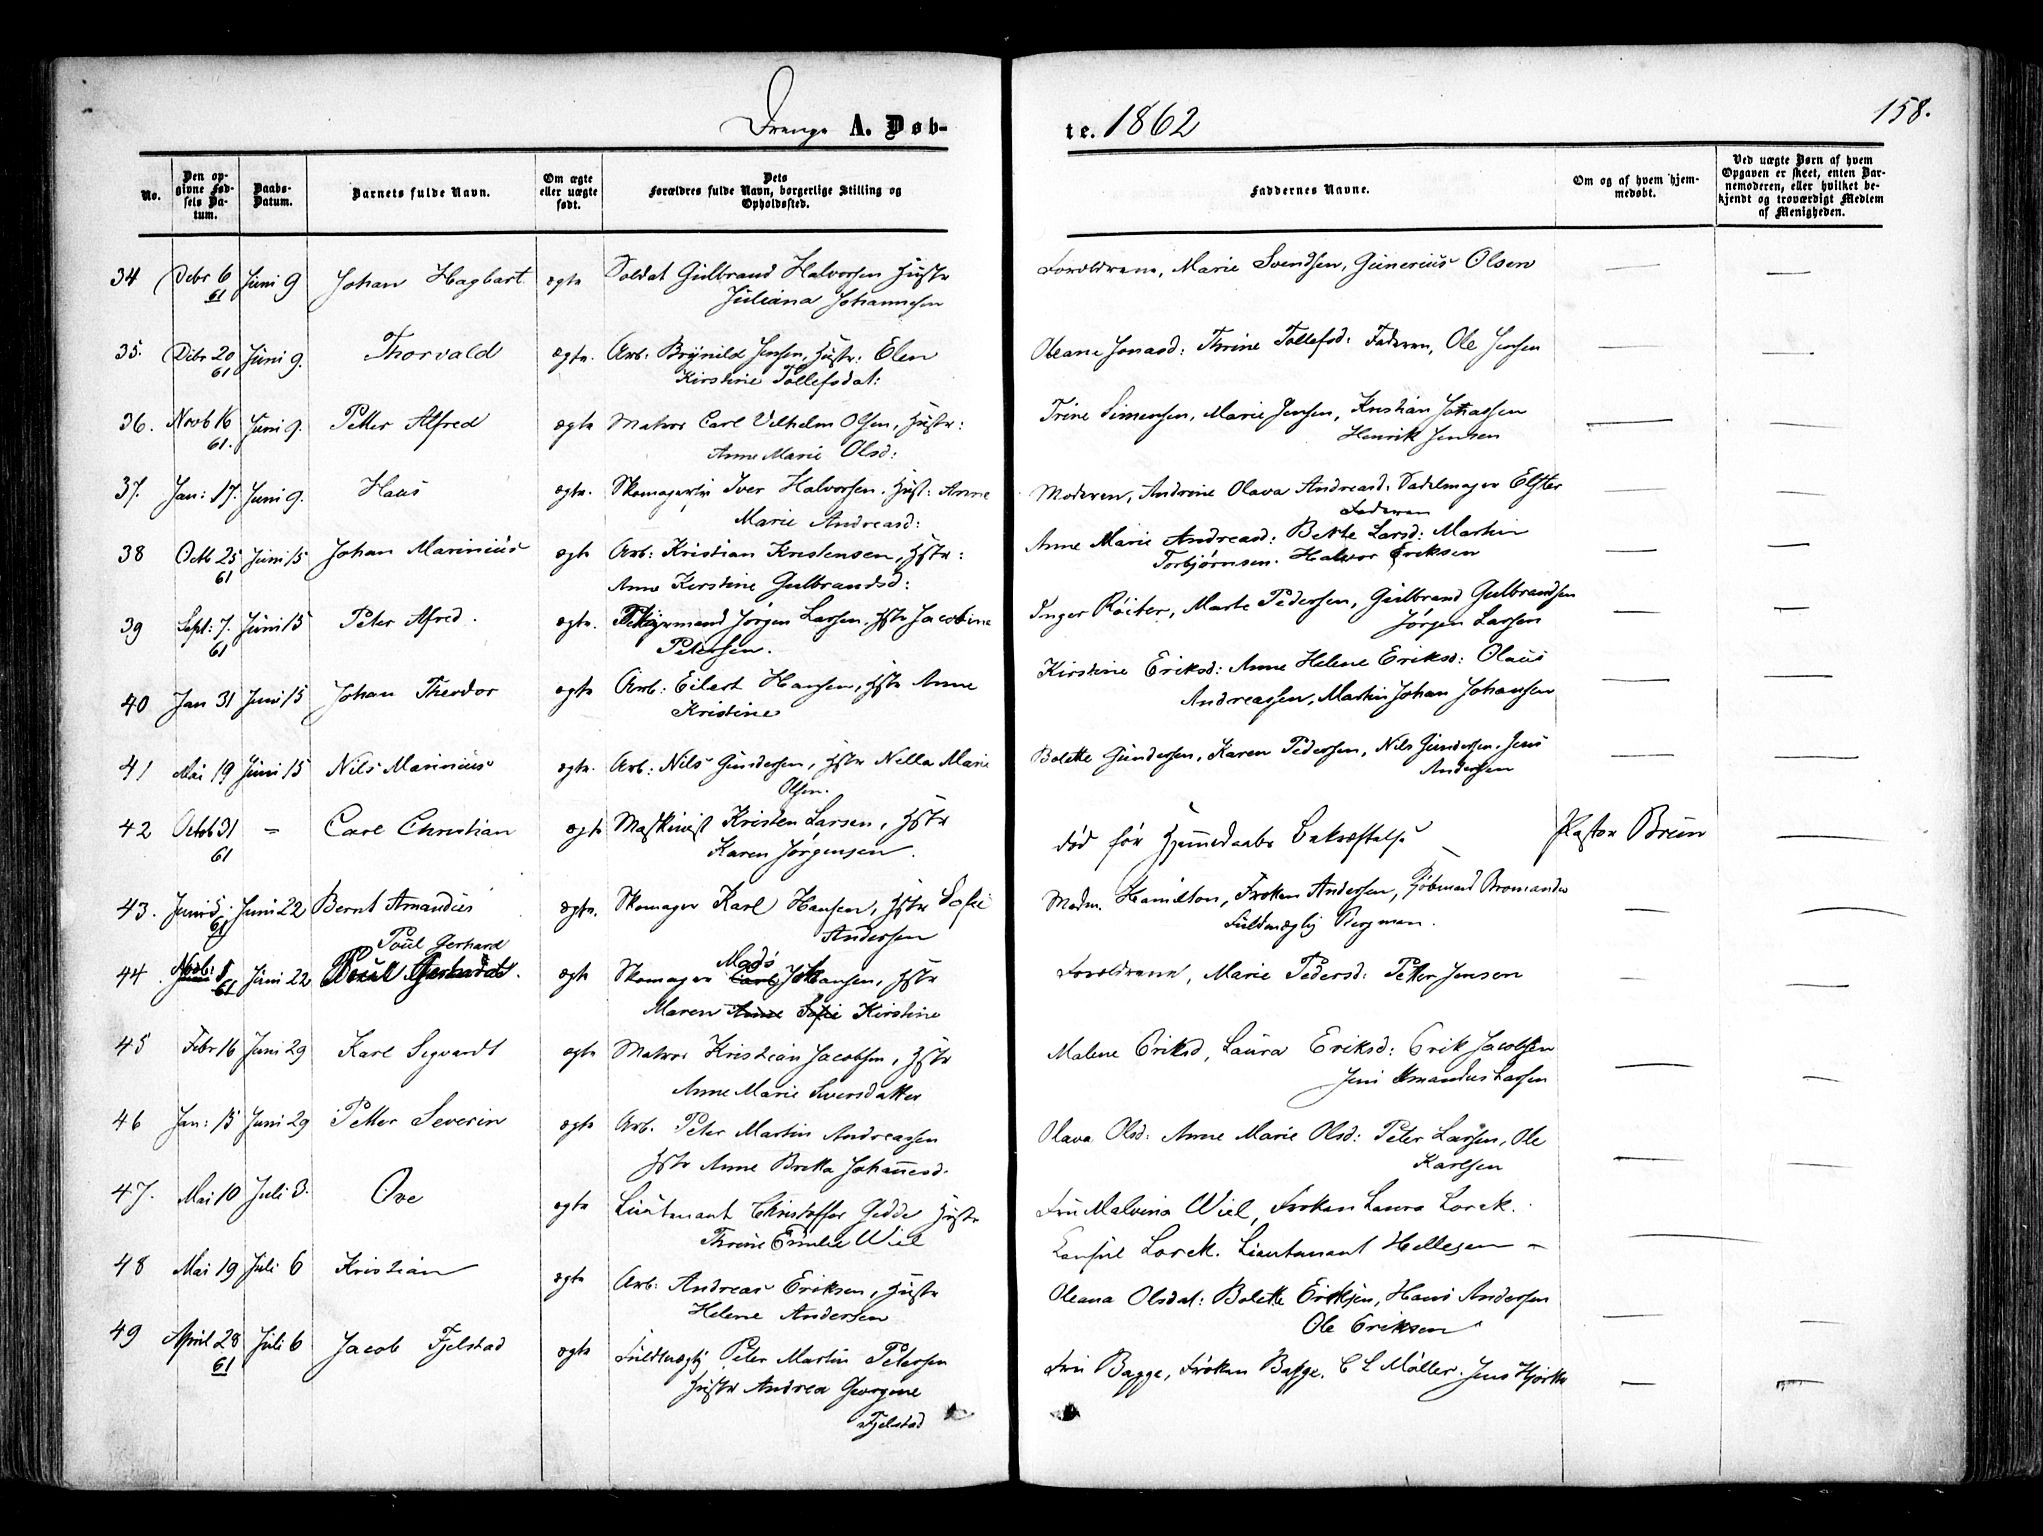 Drenge A. Døb-
te. 1862
158.
No.
Den op-
givne Fød-
sels Da-
tum.
Daabs-
Datum.
Barnets fulde Navn.
Om ægte
eller uægte
født.
Dets
Forældres fulde Navn, borgerlige Stilling og
Opholdssted.
Faddernes Navne.
Om og af hvem hjem-
medøbt.
Ved uægte Børn af hvem
Opgaven er skeet, enten Bar-
nemoderen, eller hvilket be-
kjendt og troværdigt Medlem
af Menigheden.
34 Debr 6 Juni 9 Johan Hagbart ægte Soldat Gulbrand Halvorsen Hustr Forældrene, Marie Svendsen, Gunerius Olsen — —
61 Juliana Johannesen
35. Dibr 20 Juni 9. Thorvald ægte. Arb: Brynild Jensen, Hustr: Elen Oleane Jonasd: Thrine Tollefsd: Faderen, Ole Jensen — —
61 Kirstine Tollefsdat:
36. Novb 16 Juni 9. Petter Alfred ægte Matros Carl Vilhelm Olsen, Hustr: Trine Simensen, Marie Jensen, Kristian Johassen — —
61. Anne Marie Olsd: Henrik Jensen
37. Jan: 17. Juni 9. Hans ægte. Iver Halvorsen. Hust: Anne Moderen, Andrine Olava Andreasd: Sadelmager Elster — —
Marie Andreasd: Faderen
38 Octb 25 Juni 15 Johan Marinius ægte Arb: Kristian Kristensen, Hstr: Anne Marie Andreasd: Berte Larsd: Martin — —
61 Anne Kirstine Gulbrandsd: Torbjørnsen. Halvor Eriksen
39 Sept: 7. Juni 15 Peter Alfred. ægte. Jørgen Larsen. Hstr Jacobine Inger Røiter, Marte Pedersen, Gulbrand Gulbrandsen — —
61 Petersen. Jørgen Larsen
40 Jan 31 Juni 15 Johan Theodor ægte Arb: Eilert Hansen, Hstr Anne Kirstine Eriksd: Anne Helene Eriksd: Olaus — —
Kristine Andreassen, Martin Johan Johansen
41 Mai 19 Juni 15 Nils Marinius ægte. Arb: Nils Gundersen, Hstr Nella Marie Bolette Gundersen, Karen Pedersen, Nils Gundersen. Jens — —
Olsen. Andersen
42 Octob 31 — Carl Christian ægte Maskinist Kristen Larsen, Hstr død før Hjemmedaabs Bekræftelse — Pastor Brun —
61 Karen Jørgensen.
43. Juni 5. Juni 22 Bernt Amandus ægte. Skomager Karl Hansen, Hstr Sofie Madm. Hamilton, Frøken Andersen, Kjøbmand Bromander — —
61 Andersen Fuldmægtig Bergman.
Poul Gerhard
44. Novb: 8 Juni 22 Poul Gerhardt. ægte Skomager Mads Carl Johansen, Hstr Forældrene, Marie Pedersd: Petter Jensen — —
61 Maren Anne Sofie Kirstine
45 Febr 16 Juni 29 Karl Sigvardt ægte Matros Kristian Jacobsen, Hstr Malene Eriksd, Laura Eriksd: Erik Jacobsen — —
Anne Marie Sversdatter Jens Amandus Larsen
46 Jan: 15 Juni 29 Petter Severin ægte Arb. Peter Martin Andreassen Olava Olsd: Anne Marie Olsd: Peter Larsen, Ole — —
Hstr Anne Britta Johannesd. Karlsen
47. Mai 10 Juli 3. Ove ægte Lieutenant Christoffer Gedde Hustr Fru Malvina Wiel, Frøken Laura Lorck.
Thrine Emilie Wiel Consul Lorck. Lieutenant Hellesen — —
48 Mai 19 Juli 6 Kristian ægte Arb: Andreas Eriksen, Hustr Oleana Olsdat: Bolette Eriksen, Hans Andersen — —
Helene Andersen Ole Eriksen
49 April 28 Juli 6 Jacob Fjelstad ægte Fuldmægtig Peter Martin Petersen Fru Bagge, Frøken Bagge. C L Møller. Jens Hjorth — —
61 Hustr Andrea Georgine
Fjelstad